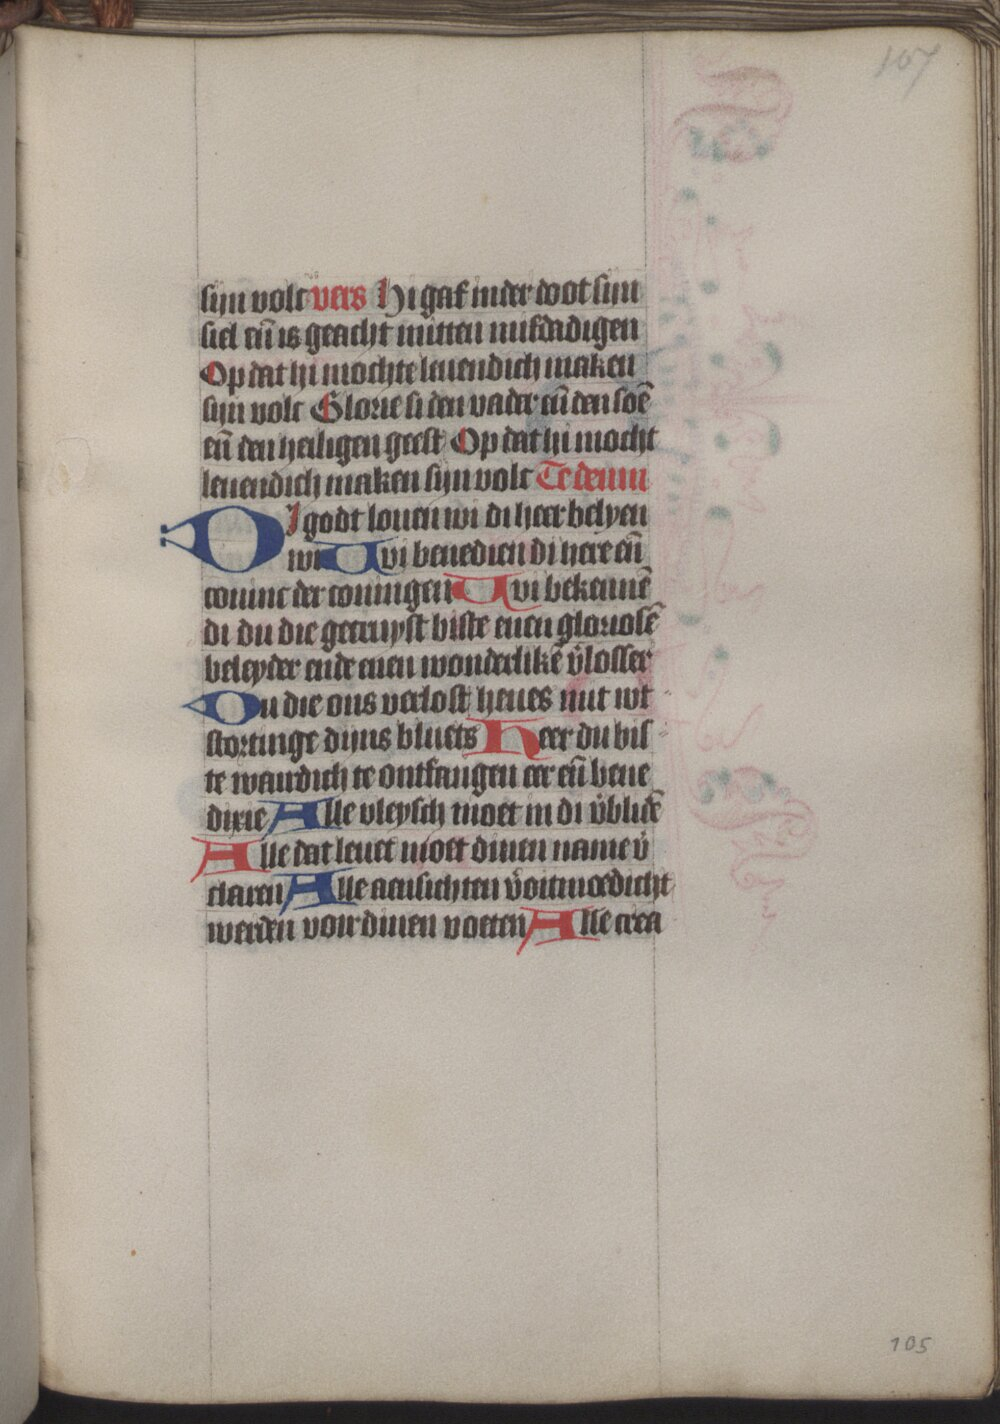 107
sijn volc vers Hi gaf inder doot sijn
siel eñ is geacht mitten misdadigen
Op dat hi mochte leuendich maken
sijn volc Glorie si den vader eñ den soē
eñ den heiligen geest Op dat hi mocht
leuendich maken sijn volc Te deum
DI godt louen wi di heer belyen
wi Wi benedien di here eñ
coninc der coningen Wi bekennē
di du die gecruyst biste enen gloriosē
beleyder ende enen wonderlikē v̄losser
Du die ons verlost heues mit wt
stortinge dijns bluets Heer du bis
te waerdich te ontfangen eer eñ bene
dixie Alle vleysch moet in di v̄blidē
Alle dat leuet moet dinen name v̄
claren Alle aensichten v̄oitmoedicht
werden voir dinen voeten Alle crea
105